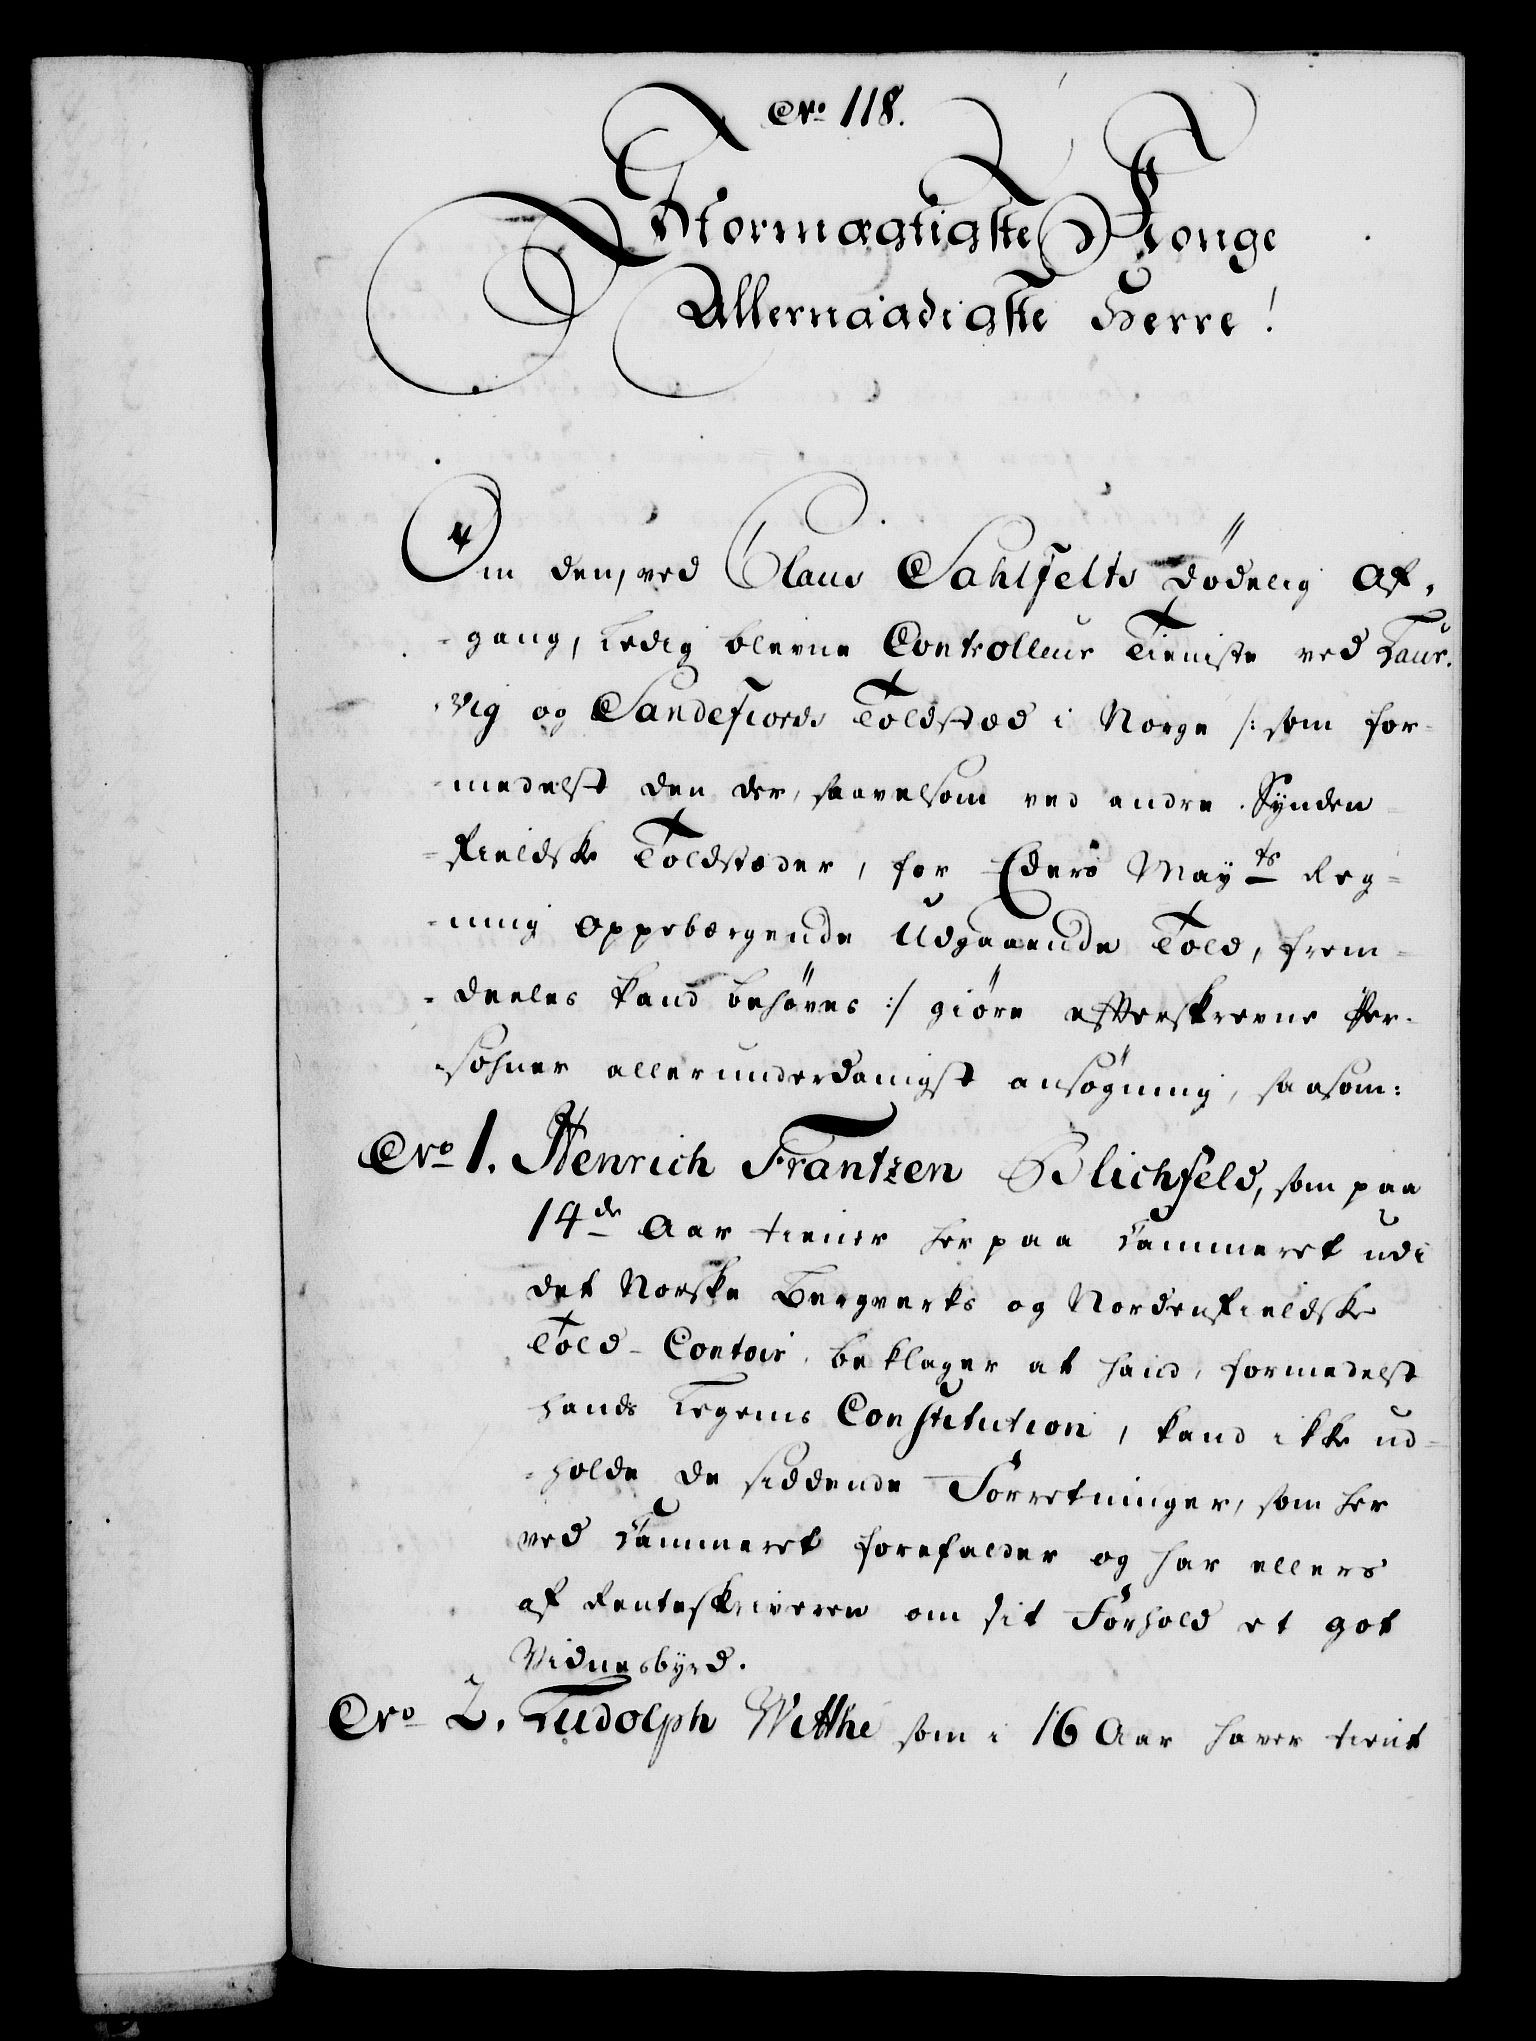 No. 118.
Stormægtigste Konge
Allernaadigste Herre!
Om den, ved Claus Sahlfelts dödelig Af-
-gang, ledig blevne Controlleur Tieniste ved Laur-
-vig og Sandefiords Toldsted i Norge /: som for-
-medelst den der, saavelsom ved andre Synden-
-fieldske Toldstæder, for Eders Mayts Reg-
-ning oppebærgende Udgaaende Told, frem-
-deeles kand behöves :/ giöre efterskrevne Per-
-sohner allerunderdanigst ansögning, saasom:
No. 1. Henrich Frantzen Blichfeld, som paa
14de Aar tiener her paa Kammeret udi
det Norske Bergverks og Nordenfieldske
Told-Contoir, beklager at hand, formedelst
hands Legems Constitution, kand ikke ud-
-holde de siddende Forretninger, som her
ved Kammeret forefalder og har ellers
af Renteskriveren om sit Forhold et got
Vidnesbyrd.
No. 2. Ludolph Witthe som i 16 Aar haver tient